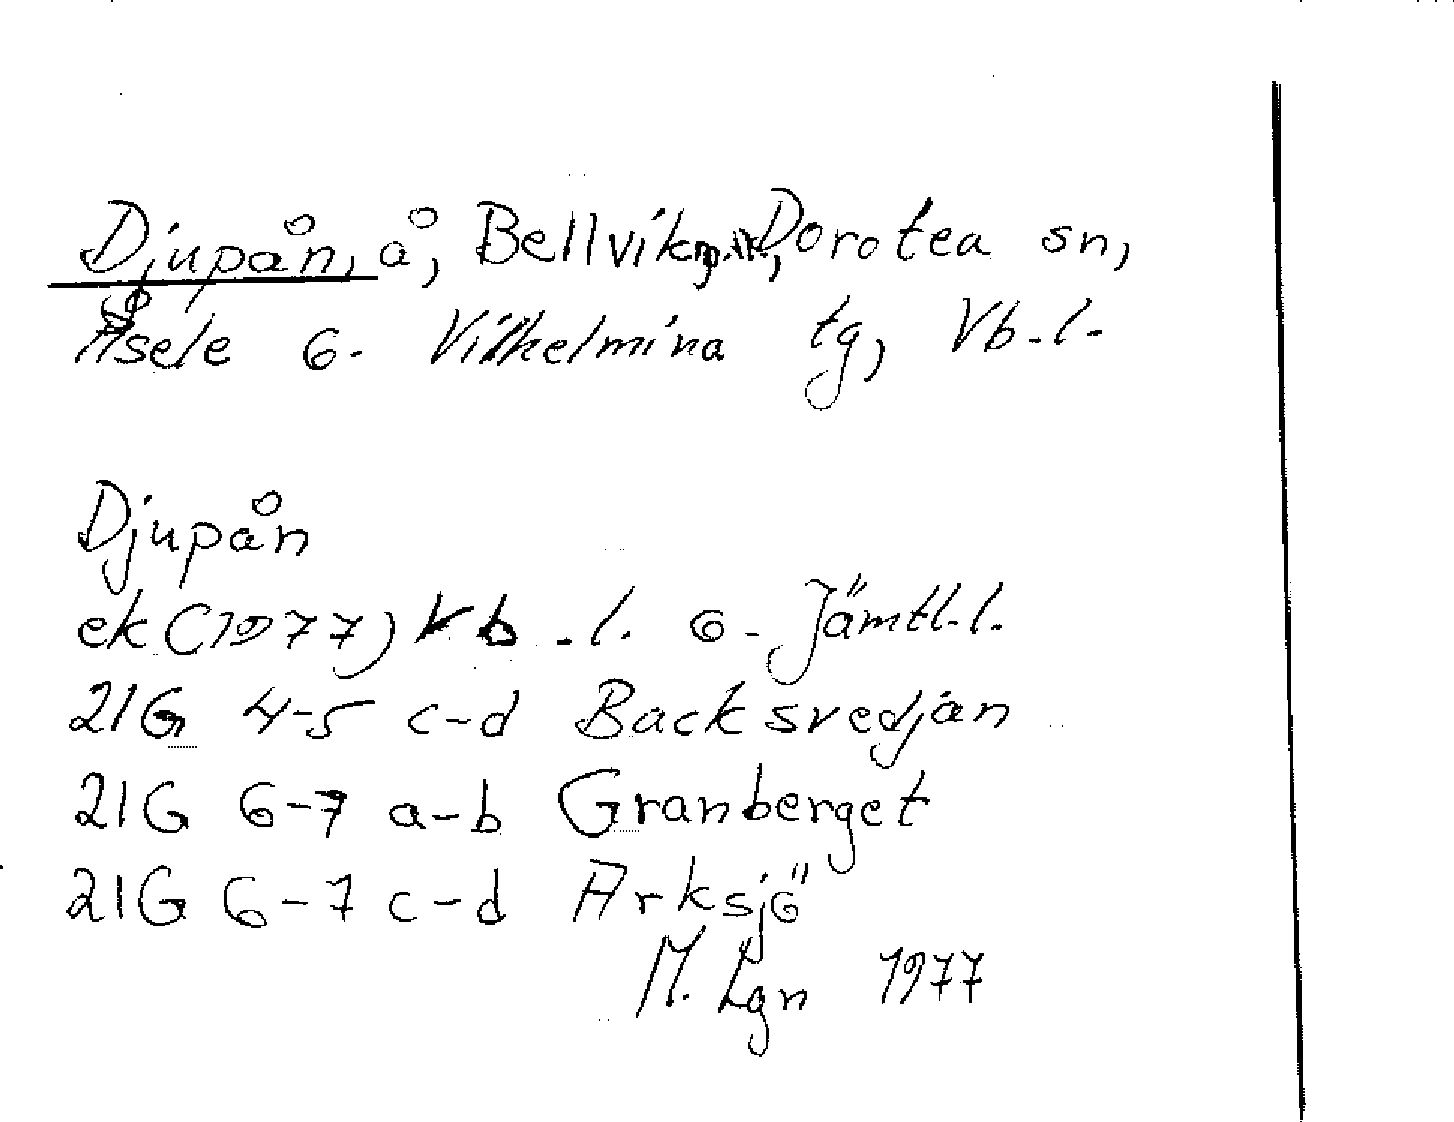 Djupån, å, Bellvik m.fl., Dorotea sn,
Åsele o. Vilhelmina tg, Vb.l.
Djupån
ek (1977) Vb.l. o. Jämtl.l.
21G 4-5 c-d Backsvedjan
21G 6-7 a-b Granberget
21G 6-7 c-d Arksjö
M. Lgn 1977